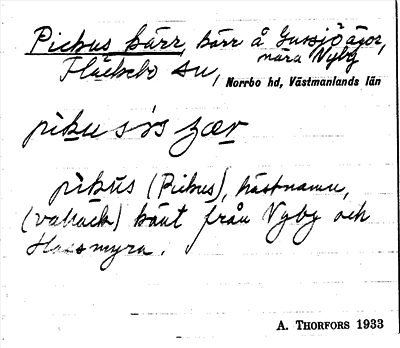 Pickus kärr, kärr å Gussjö ägor,
nära Nyby
Fläckebo sn,
Norrbo hd, Västmanlands län
pikus çær
pikus (Pickus), hästnamn,
(vallack) känt från Nyby och
Hassmyra.
A. THORFORS 1933